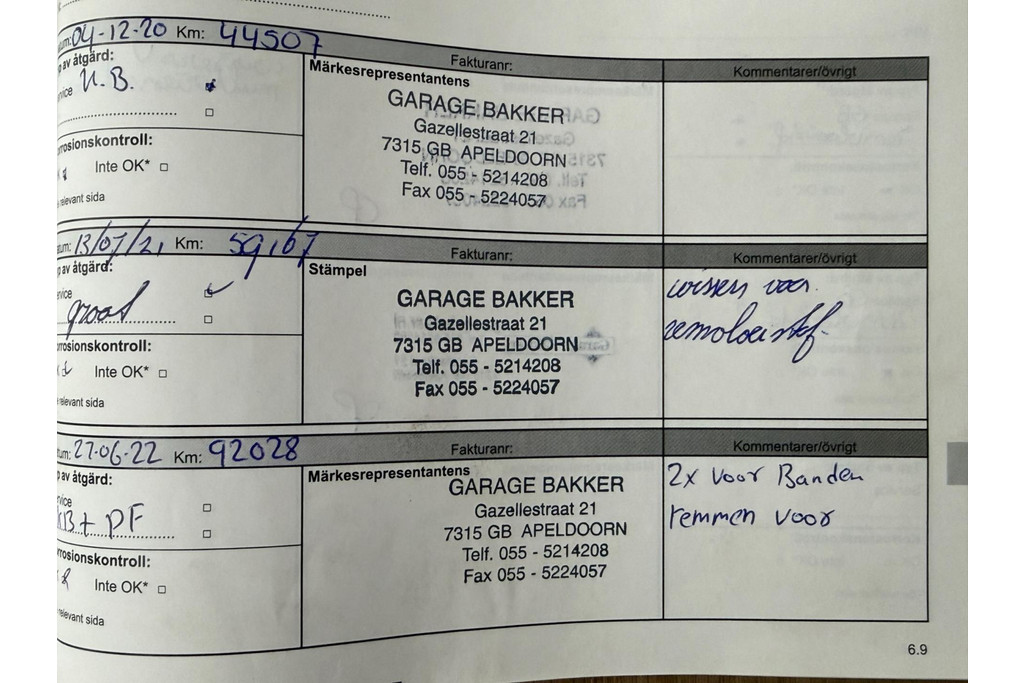 04-12-20 Km: 44507
Fakturanr:
Kommentarer/övrigt
av åtgärd:
K.B.
Märkesrepresentantens
GARAGE BAKKER
Gazellestraat 21
7315 GB APELDOORN
Telf. 055 - 5214208
Fax 055 - 5224057
rosionskontroll:
Inte OK*
relevant sida
13/07/21 Km: 59167
Fakturanr:
Kommentarer/övrigt
av åtgärd:
groot
Stämpel
GARAGE BAKKER
Gazellestraat 21
7315 GB APELDOORN
Telf. 055 - 5214208
Fax 055 - 5224057
wissers voor
remvloeistof
rosionskontroll:
Inte OK*
relevant sida
27-06-22 Km: 92028
Fakturanr:
Kommentarer/övrigt
av åtgärd:
KB + PF
Märkesrepresentantens
GARAGE BAKKER
Gazellestraat 21
7315 GB APELDOORN
Telf. 055 - 5214208
Fax 055 - 5224057
2x voor Banden
remmen voor
rosionskontroll:
Inte OK*
relevant sida
6.9